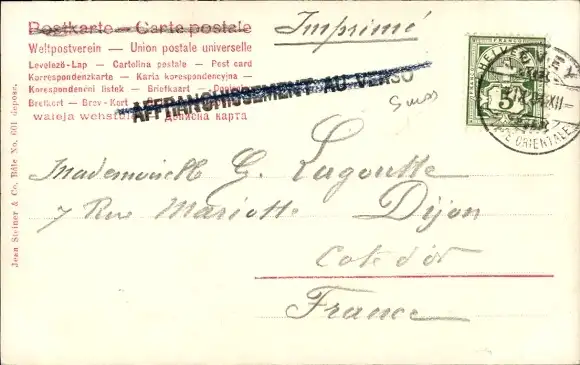 Postkarte — Carte postale
Imprimé
Weltpostverein — Union postale universelle
Levelező-Lap — Cartolina postale — Post card
Korrespondenzkarte — Karta korespondencyjna —
Korespondenční lístek — Briefkaart —
Brefkort — Brev-Kort
AFFRANCHISSEMENT AU VERSO
карта
HELV
5
VEVEY
ORIENTALE
Mademoiselle G. Lagoutte
7 Rue Mariotte Dijon
Cote d'or
France
Jean Steiner & Co. Bâle No. 601 déposé.